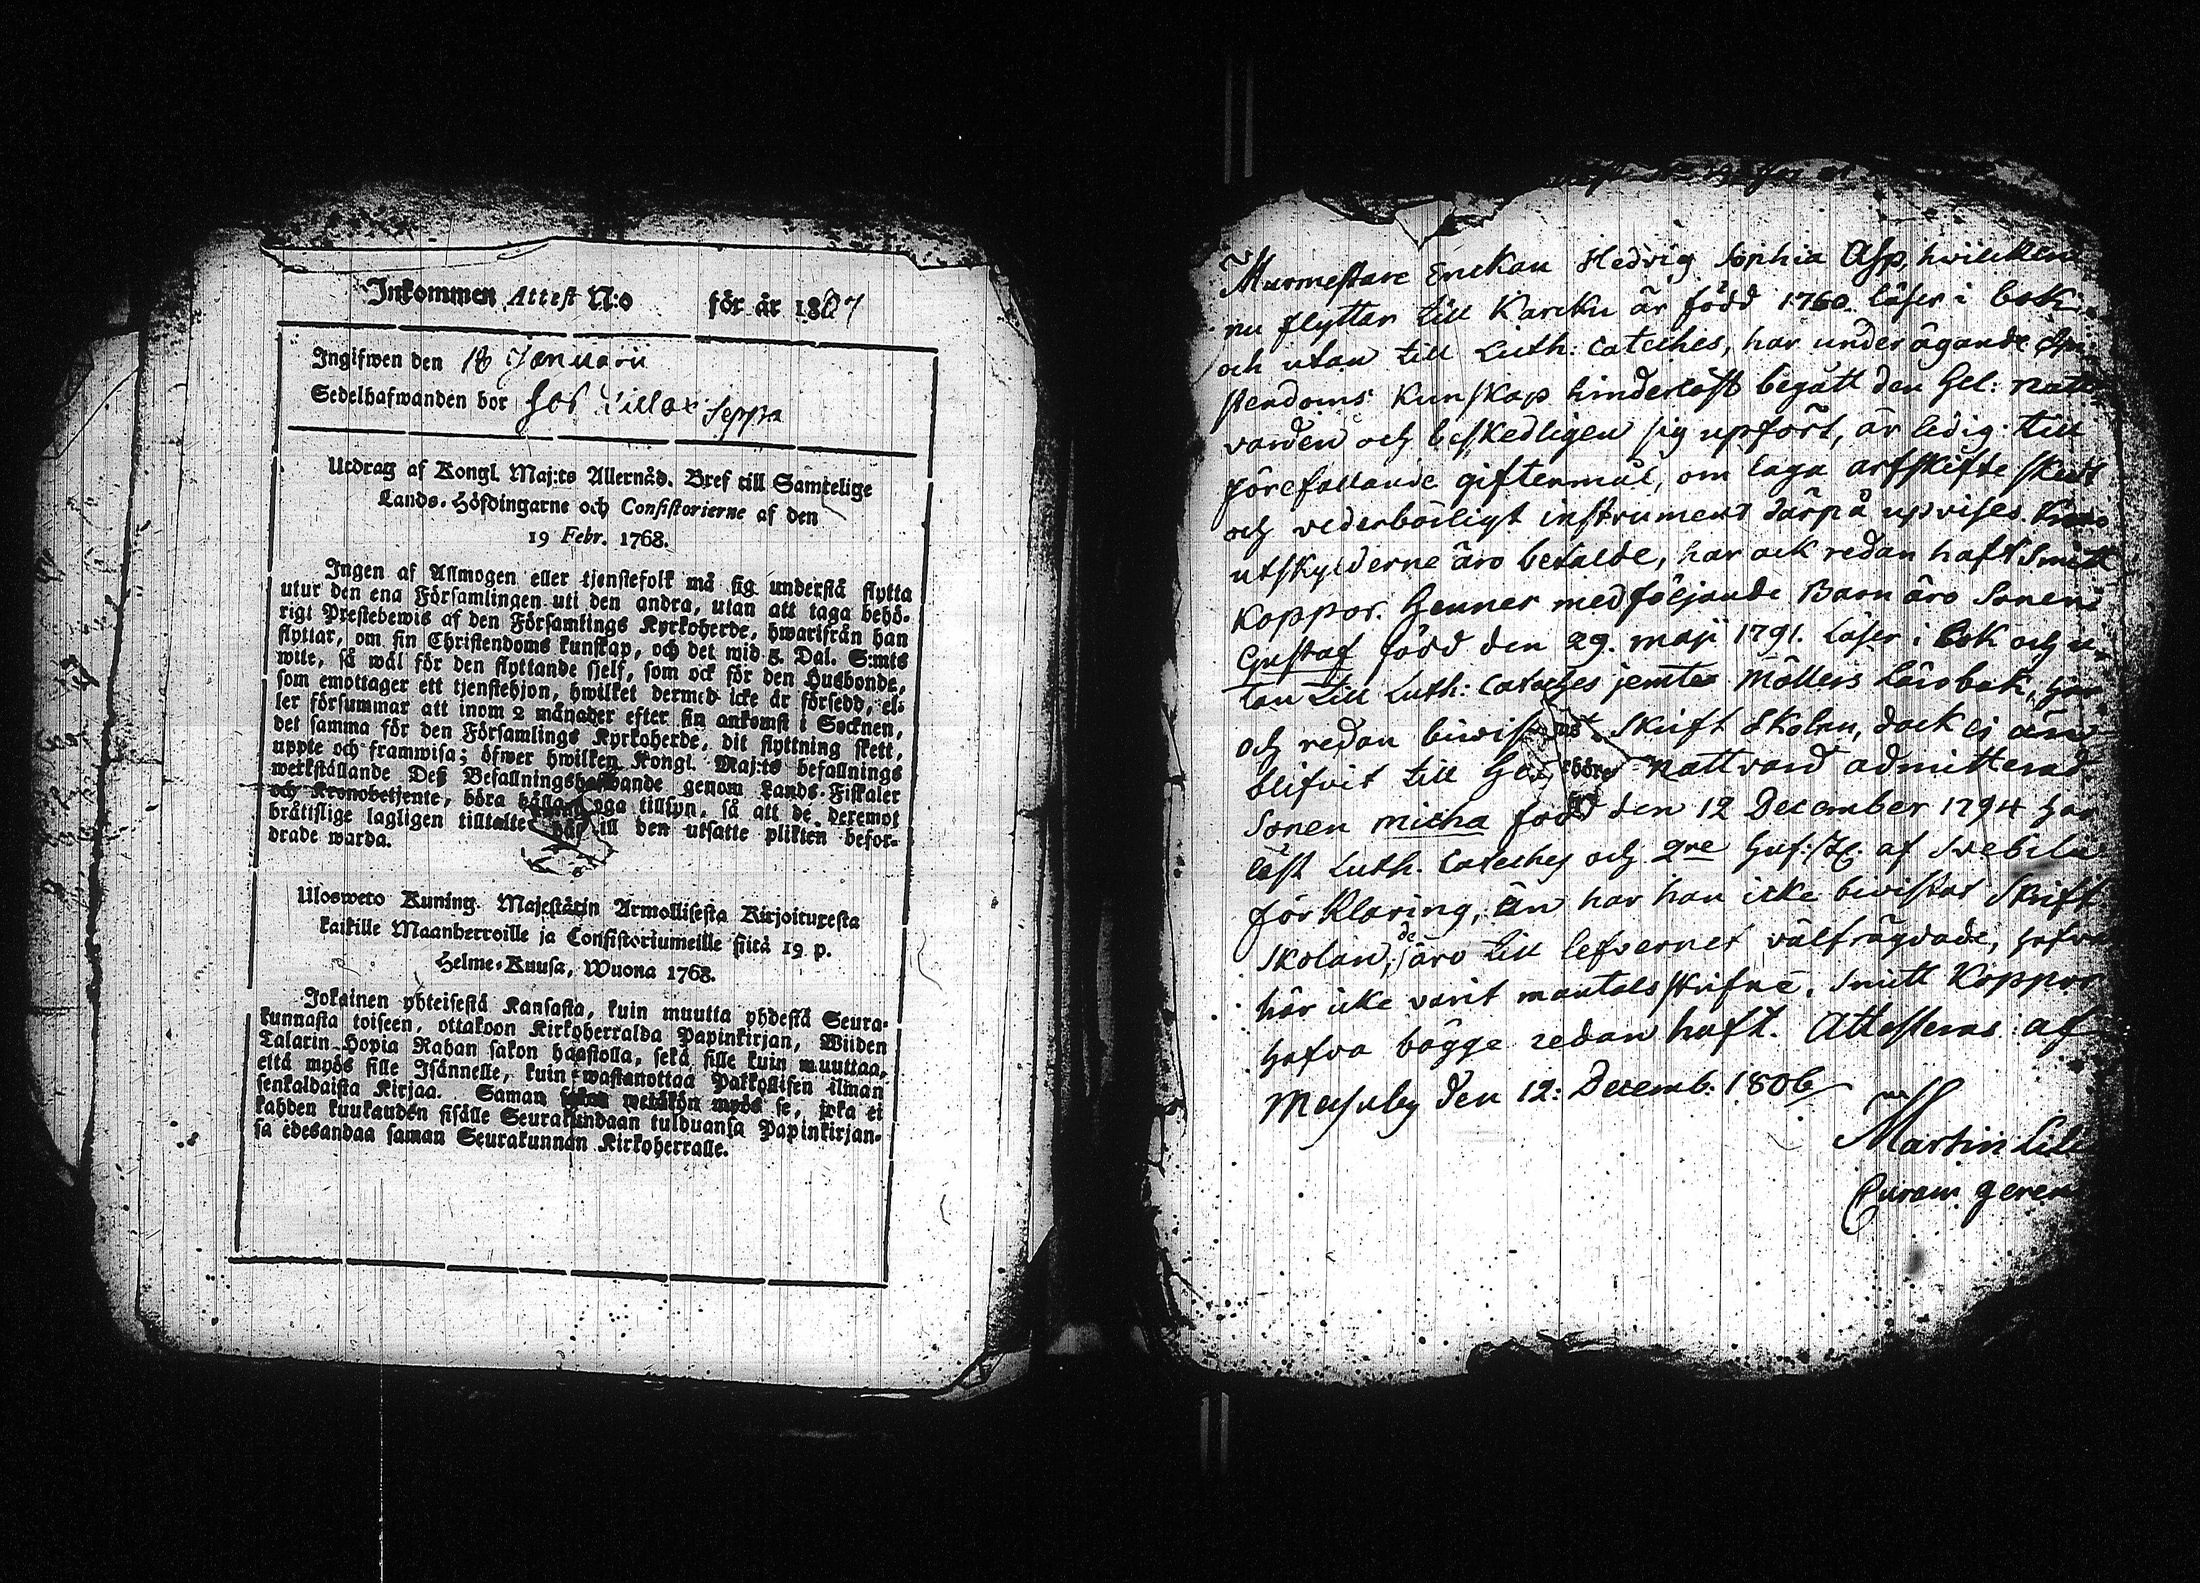 Inkommen Attest N:o för år 1807
Ingifwen den 18 Januarii
Sedelhafwanden bor hos Seppa
Utdrag af Kongl. Maj:ts Allernåd. Bref till Samtelige
Lands-Höfdingarne och Consistorierne af den
19 Febr. 1768.
Ingen af Allmogen eller tjenstefolk må sig understå flytta
utur den ena Församlingen uti den andra, utan att taga behö-
rigt Prestebewis af den Församlings Kyrkoherde, hwarifrån han
flyttar, om sin Christendoms kunskap, och det wid 5. Dal. S:mts
wite, så wäl för den flyttande sjelf, som ock för den Husbonde,
som emottager ett tjenstehjon, hwilket dermed icke är försedd, el-
ler försummar att inom 2 månader efter sin ankomst i Socknen,
det samma för den Församlings Kyrkoherde, dit flyttning skett,
uppte och framwisa; öfwer hwilken Kongl. Maj:ts befallnings
werkställande Deß Befallningshafwande genom Lands-Fiskaler
och Kronobetjente, böra hålla noga tillsyn, så att de deremot
bråtslige lagligen tilltalte till den utsatte plikten befor-
drade warda.
Ulosweto Kuning. Majestätin Armollisesta Kirjoituxesta
kaikille Maanherroille ja Consistoriumeille siitä 19 p.
Helme-Kuusa, Wuona 1768.
Jokainen yhteisestä Kansasta, kuin muutta yhdestä Seura-
kunnasta toiseen, ottakoon Kirkoherralda Papinkirjan, Wiiden
Talarin Hopia Rahan sakon haastolla, sekä sille kuin muuttaa,
että myös sille Isännelle, kuin wastanottaa Palkollisen ilman
senkaldaista Kirjaa. Saman sakon wetäkön myös se, joka ei
kahden kuukauden sisälle Seurakundaan tulduansa Papinkirjan-
sa edesandaa saman Seurakunnan Kirkoherralle.
Murmestare Enckan Hedvig Sophia Asp, hwilcken
nu flyttar till Karcku är född 1760. läser i bok
och utan till Luth: Cateches, har under ägande Chri
stendoms kunskap hinderlöst begått den Hel: Natt-
varden och beskedligen sig upfört, är ledig till
förefallande giftermål, om laga arfskifte skedt
och vederbörligt instrument därpå upvises. Krono
utskylderne äro betalde, har ock redan haft Smitt
koppor. Hennes medföljande Barn äro Sonen
Gustaf född den 29. maji 1791. läser i bok och u-
tan till Luth: Cateches jemte Möllers lärobok, har
och redan biwistat Skrift Skolan, dock ej än
blifvit till Nattvard admitterad.
Sonen micha född den 12 December 1794 har
läst Luth. Cateches och 2ne Huf: St: af Svebilii
förklaring, än har han icke biwistat Skrift
skolan, de äro till lefvernet välfrägdade, hafva
här icke varit mantalsskrifne, Smitt Koppor
hafva bägge redan haft. Attesteras af
Mashuby den 12: Decemb: 1806
Martin
Curam geren